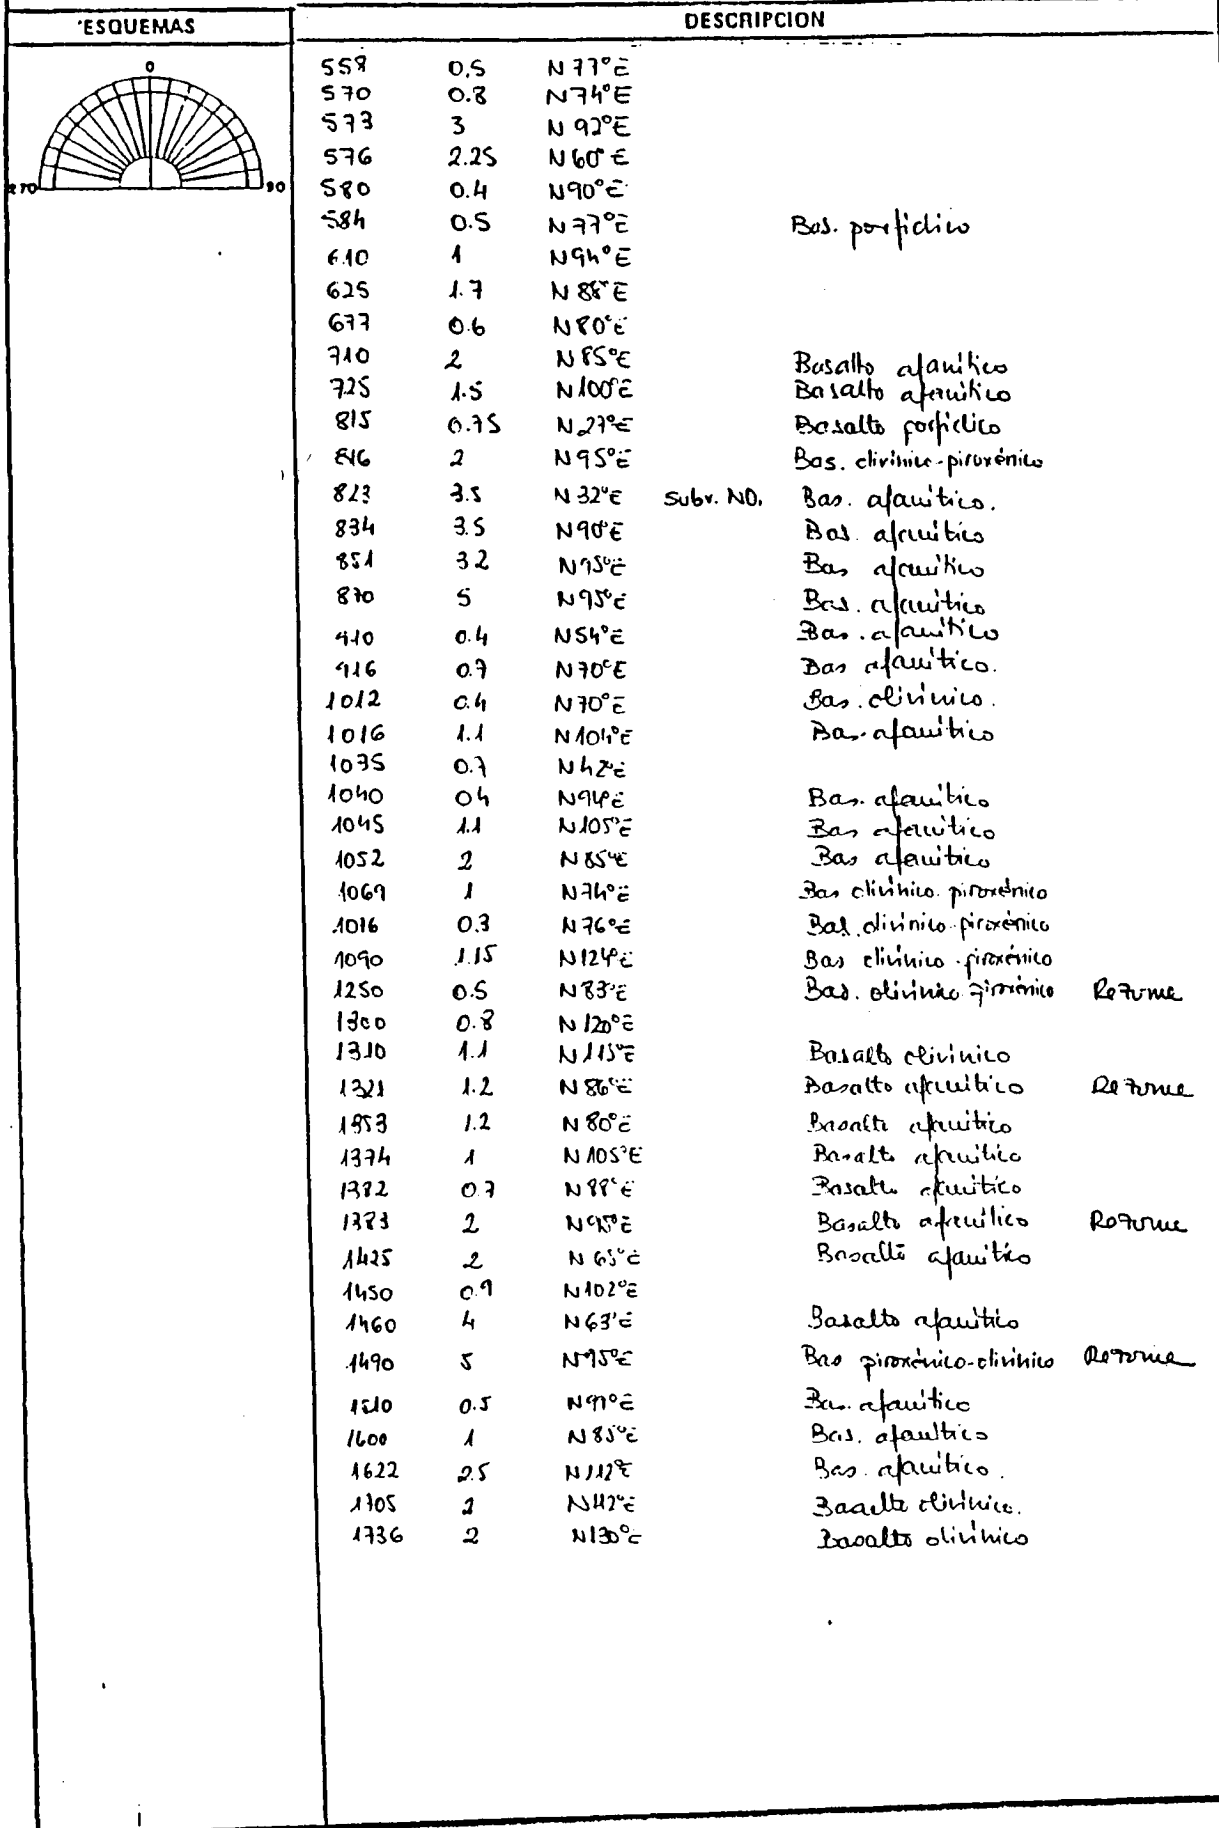 ESQUEMAS
DESCRIPCION
0
270
90
558 0.5 N77°E
570 0.8 N74°E
573 3 N92°E
576 2.25 N60°E
580 0.4 N90°E
584 0.5 N77°E Bas. porfidico
610 1 N94°E
625 1.7 N88°E
677 0.6 N80°E
710 2 N85°E Basalto afanítico
725 1.5 N100°E Basalto afanítico
815 0.75 N27°E Basalto porfidico
816 2 N95°E Bas. olivínico-piroxénico
823 3.5 N32°E Subv. NO. Bas. afanítico.
834 3.5 N90°E Bas. afanítico
851 3.2 N95°E Bas afanítico
870 5 N95°E Bas. afanítico
910 0.4 N54°E Bas. afanítico
916 0.7 N70°E Bas afanítico.
1012 0.4 N70°E Bas. olivínico.
1016 1.1 N104°E Bas. afanítico
1035 0.7 N42°E
1040 04 N94°E Bas. afanítico
1045 1.1 N105°E Bas afanítico
1052 2 N85°E Bas afanítico
1069 1 N74°E Bas olivínico. piroxénico
1016 0.3 N76°E Bas. olivínico-piroxénico
1090 1.15 N124°E Bas olivínico-piroxénico
1250 0.5 N83°E Bas. olivínico piroxénico Rezume
1300 0.8 N120°E
1310 1.1 N115°E Basalto olivínico
1321 1.2 N86°E Basalto afanítico Rezume
1353 1.2 N80°E Basalto afanítico
1374 1 N105°E Basalto afanítico
1382 0.7 N88°E Basalto afanítico
1383 2 Basalto afanítico Rezume
1425 2 N65°E Basalto afanítico
1450 0.9 N102°E
1460 4 N63°E Basalto afanítico
1490 5 N95°E Bas piroxénico-olivínico Rezume
1510 0.5 N97°E Bas. afanítico
1600 1 N85°E Bas. afanítico
1622 2.5 N112°E Bas. afanítico.
1705 2 Basalto olivínico.
1736 2 N130°E Basalto olivínico